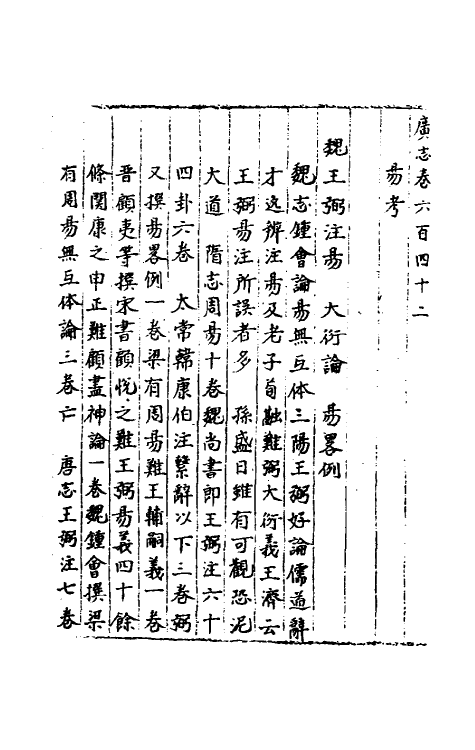 廣志卷六百四十二
易考
魏王弼注易　大衍論　易畧例
魏志鍾會論易無互体三陽王弼好論儒道辭
才逸辨注易及老子荀融難弼大衍義王濟云
王弼易注所誤者多　孫盛曰雖有可觀恐泥
大道　隋志周易十卷魏尚書郎王弼注六十
四卦六卷　太常韓康伯注繫辭以下三卷弼
又撰易畧例一卷梁有周易難王輔嗣義一卷
晋顧夷等撰宋書顧悦之難王弼易義四十餘
條関康之申正難顧盡神論一卷魏鍾會撰梁
有周易無互体論三卷亡　唐志王弼注七卷